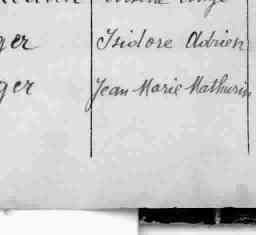 ger Isidore Adrien
ger Jean Marie Mathurin